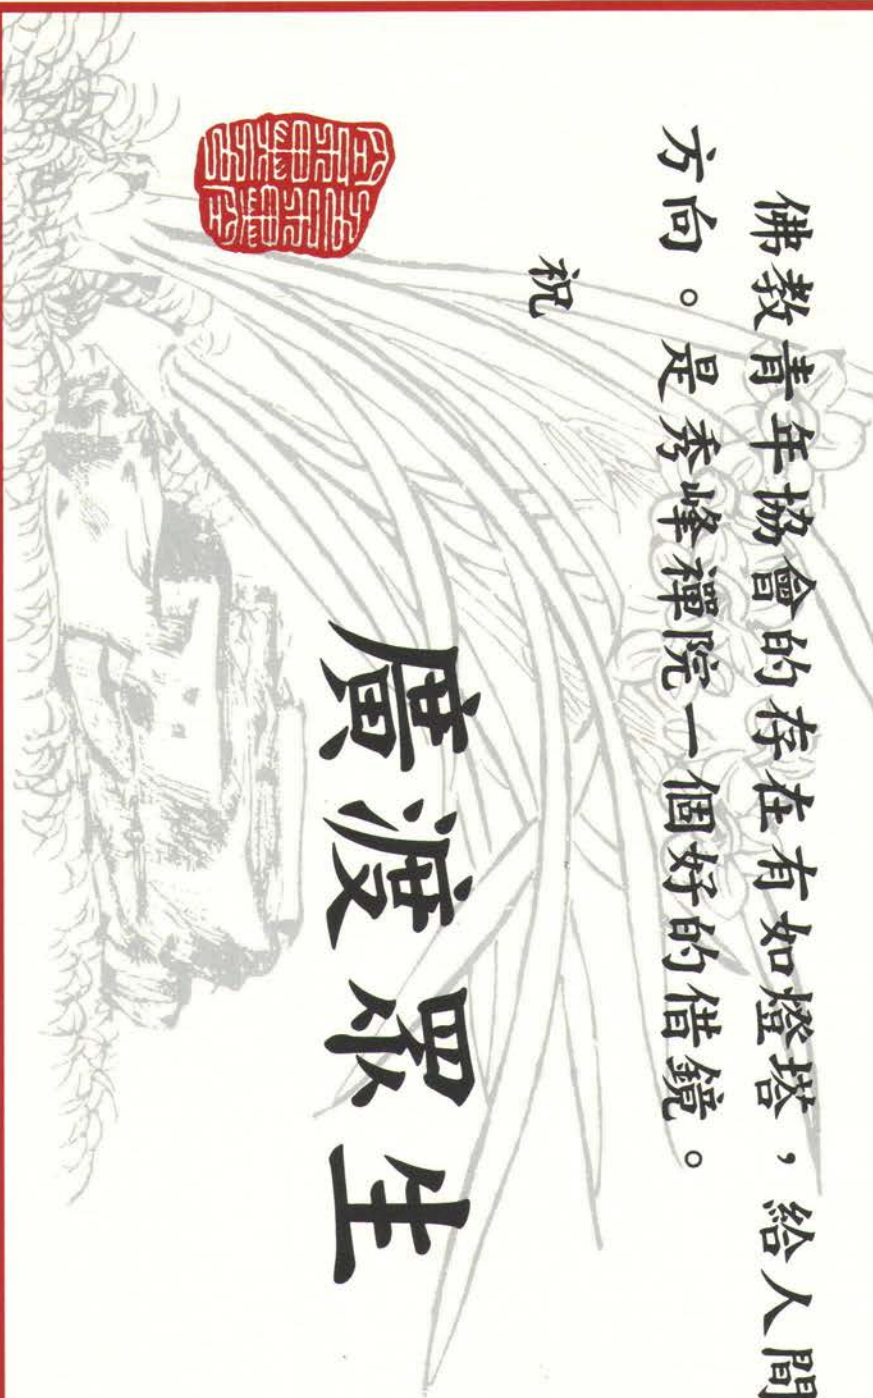 佛教青年協會的存在有如燈塔，給人間
方向。是秀峰禪院一個好的借鏡。
祝
廣渡眾生